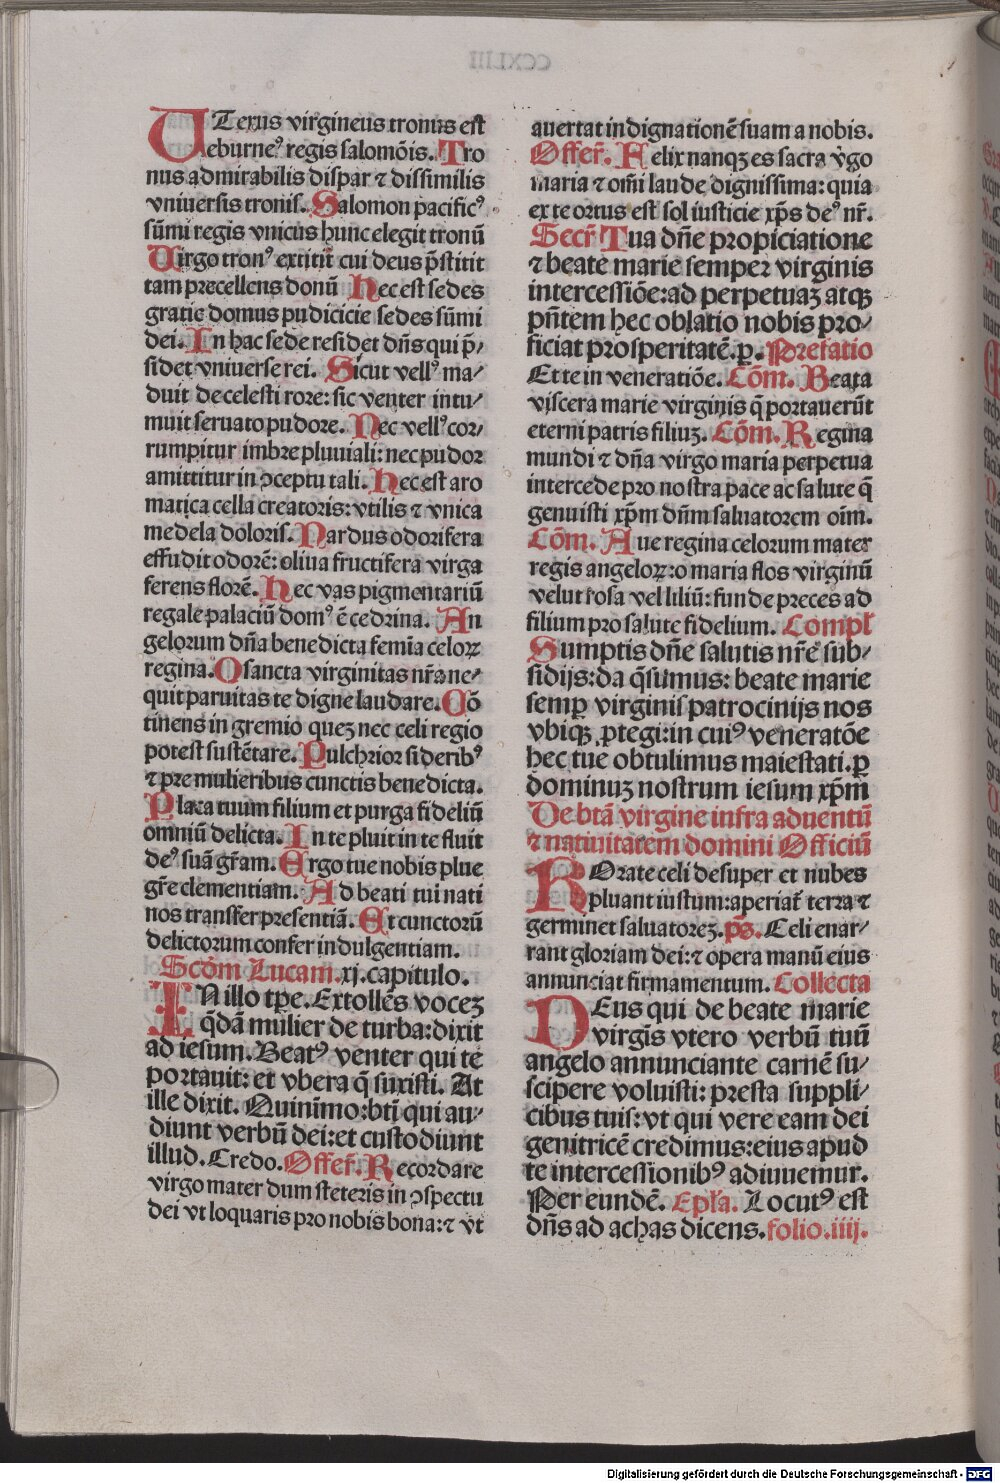 UTerus virgineus tronus est
eburneꝰ regis salomōis. Tro
nus admirabilis dispar ⁊ dissimilis
vniuersis tronis. Salomon pacificꝰ
sūmi regis vnicus hunc elegit tronū
Uirgo tronꝰ extitit cui deus p̄stitit
tam precellens donū Hec est sedes
gratie domus pudicicie sedes sūmi
dei. In hac sede residet dn̄s qui p̄⸗
sidet vniuerse rei. Sicut vellꝰ ma⸗
duit de celesti rore: sic venter intu⸗
muit seruato pudore. Nec vellꝰ cor⸗
rumpitur imbre pluuiali: nec pudor
amittitur in ↄceptu tali. Hec est aro
matica cella creatoris: vtilis ⁊ vnica
medela doloris. Nardus odorifera
effudit odorē: oliua fructifera virga
ferens florē. Hec vas pigmentariū
regale palaciū domꝰ ē cedrina. An
gelorum dn̄a benedicta femīa celoꝝ
regina. O sancta virginitas nr̄a ne⸗
quit paruitas te digne laudare. Cō
tinens in gremio queꝫ nec celi regio
potest sustētare. Pulchrior sideribꝰ
⁊ pre mulieribus cunctis benedicta.
Placa tuum filium et purga fideliū
omniū delicta. In te pluit in te fluit
deꝰ suā gr̄am. Ergo tue nobis plue
gr̄e clementiam. Ad beati tui nati
nos transfer presentiā. Et cunctorū
delictorum confer indulgentiam.
Scd̄m Lucam. xj. capitulo.
IN illo tp̄e. Extollēs voceꝫ
q̄dā mulier de turba: dixit
ad iesum. Beatꝰ venter qui te
portauit: et vbera q̄ suxisti. At
ille dixit. Quinīmo: bt̄i qui au⸗
diunt verbū dei: et custodiunt
illud. Credo. Offer̄. Recordare
virgo mater dum steteris in ↄspectu
dei vt loquaris pro nobis bona: ⁊ vt
auertat indignationē suam a nobis.
Offer̄. Felix nanqꝫ es sacra v̓go
maria ⁊ om̄i laude dignissima: quia
ex te ortus est sol iusticie xp̄s deꝰ nr̄.
Secr̄ Tua dn̄e propiciatione
⁊ beate marie semper virginis
intercessiōe: ad perpetuaꝫ atqꝫ
pn̄tem hec oblatio nobis pro⸗
ficiat prosperitatē. ꝑ. Prefatio
Et te in veneratiōe. Cōm. Beata
viscera marie virginis q̄ portauerūt
eterni patris filiuꝫ. Cōm. Regina
mundi ⁊ dn̄a virgo maria perpetua
intercede pro nostra pace ac salute q̄
genuisti xp̄m dn̄m saluatorem oīm.
Cōm. Aue regina celorum mater
regis angeloꝝ: o maria flos virginū
velut rosa vel liliū: funde preces ad
filium pro salute fidelium. Compł
Sumptis dn̄e salutis nr̄e sub⸗
sidijs: da q̄sumus: beate marie
semꝑ virginis patrocinijs nos
vbiqꝫ ꝓtegi: in cuiꝰ veneratōe
hec tue obtulimus maiestati. ꝑ
dominuꝫ nostrum iesum xp̄m
De btā virgine infra aduentū
⁊ natiuitatem domini Officiū
ROrate celi desuper et nubes
pluant iustum: aperiat̄ terra ⁊
germinet saluatoreꝫ. ps̄. Celi enar⸗
rant gloriam dei: ⁊ opera manū eius
annunciat firmamentum. Collecta
DEus qui de beate marie
virgīs vtero verbū tuū
angelo annunciante carnē su⸗
scipere voluisti: presta suppli⸗
cibus tuis: vt qui vere eam dei
genitricē credimus: eius apud
te intercessionibꝰ adiuuemur.
Per eundē. Epła. Locutꝰ est
dn̄s ad achas dicens. folio. iiij.
Digitalisierung gefördert durch die Deutsche Forschungsgemeinschaft - DFG